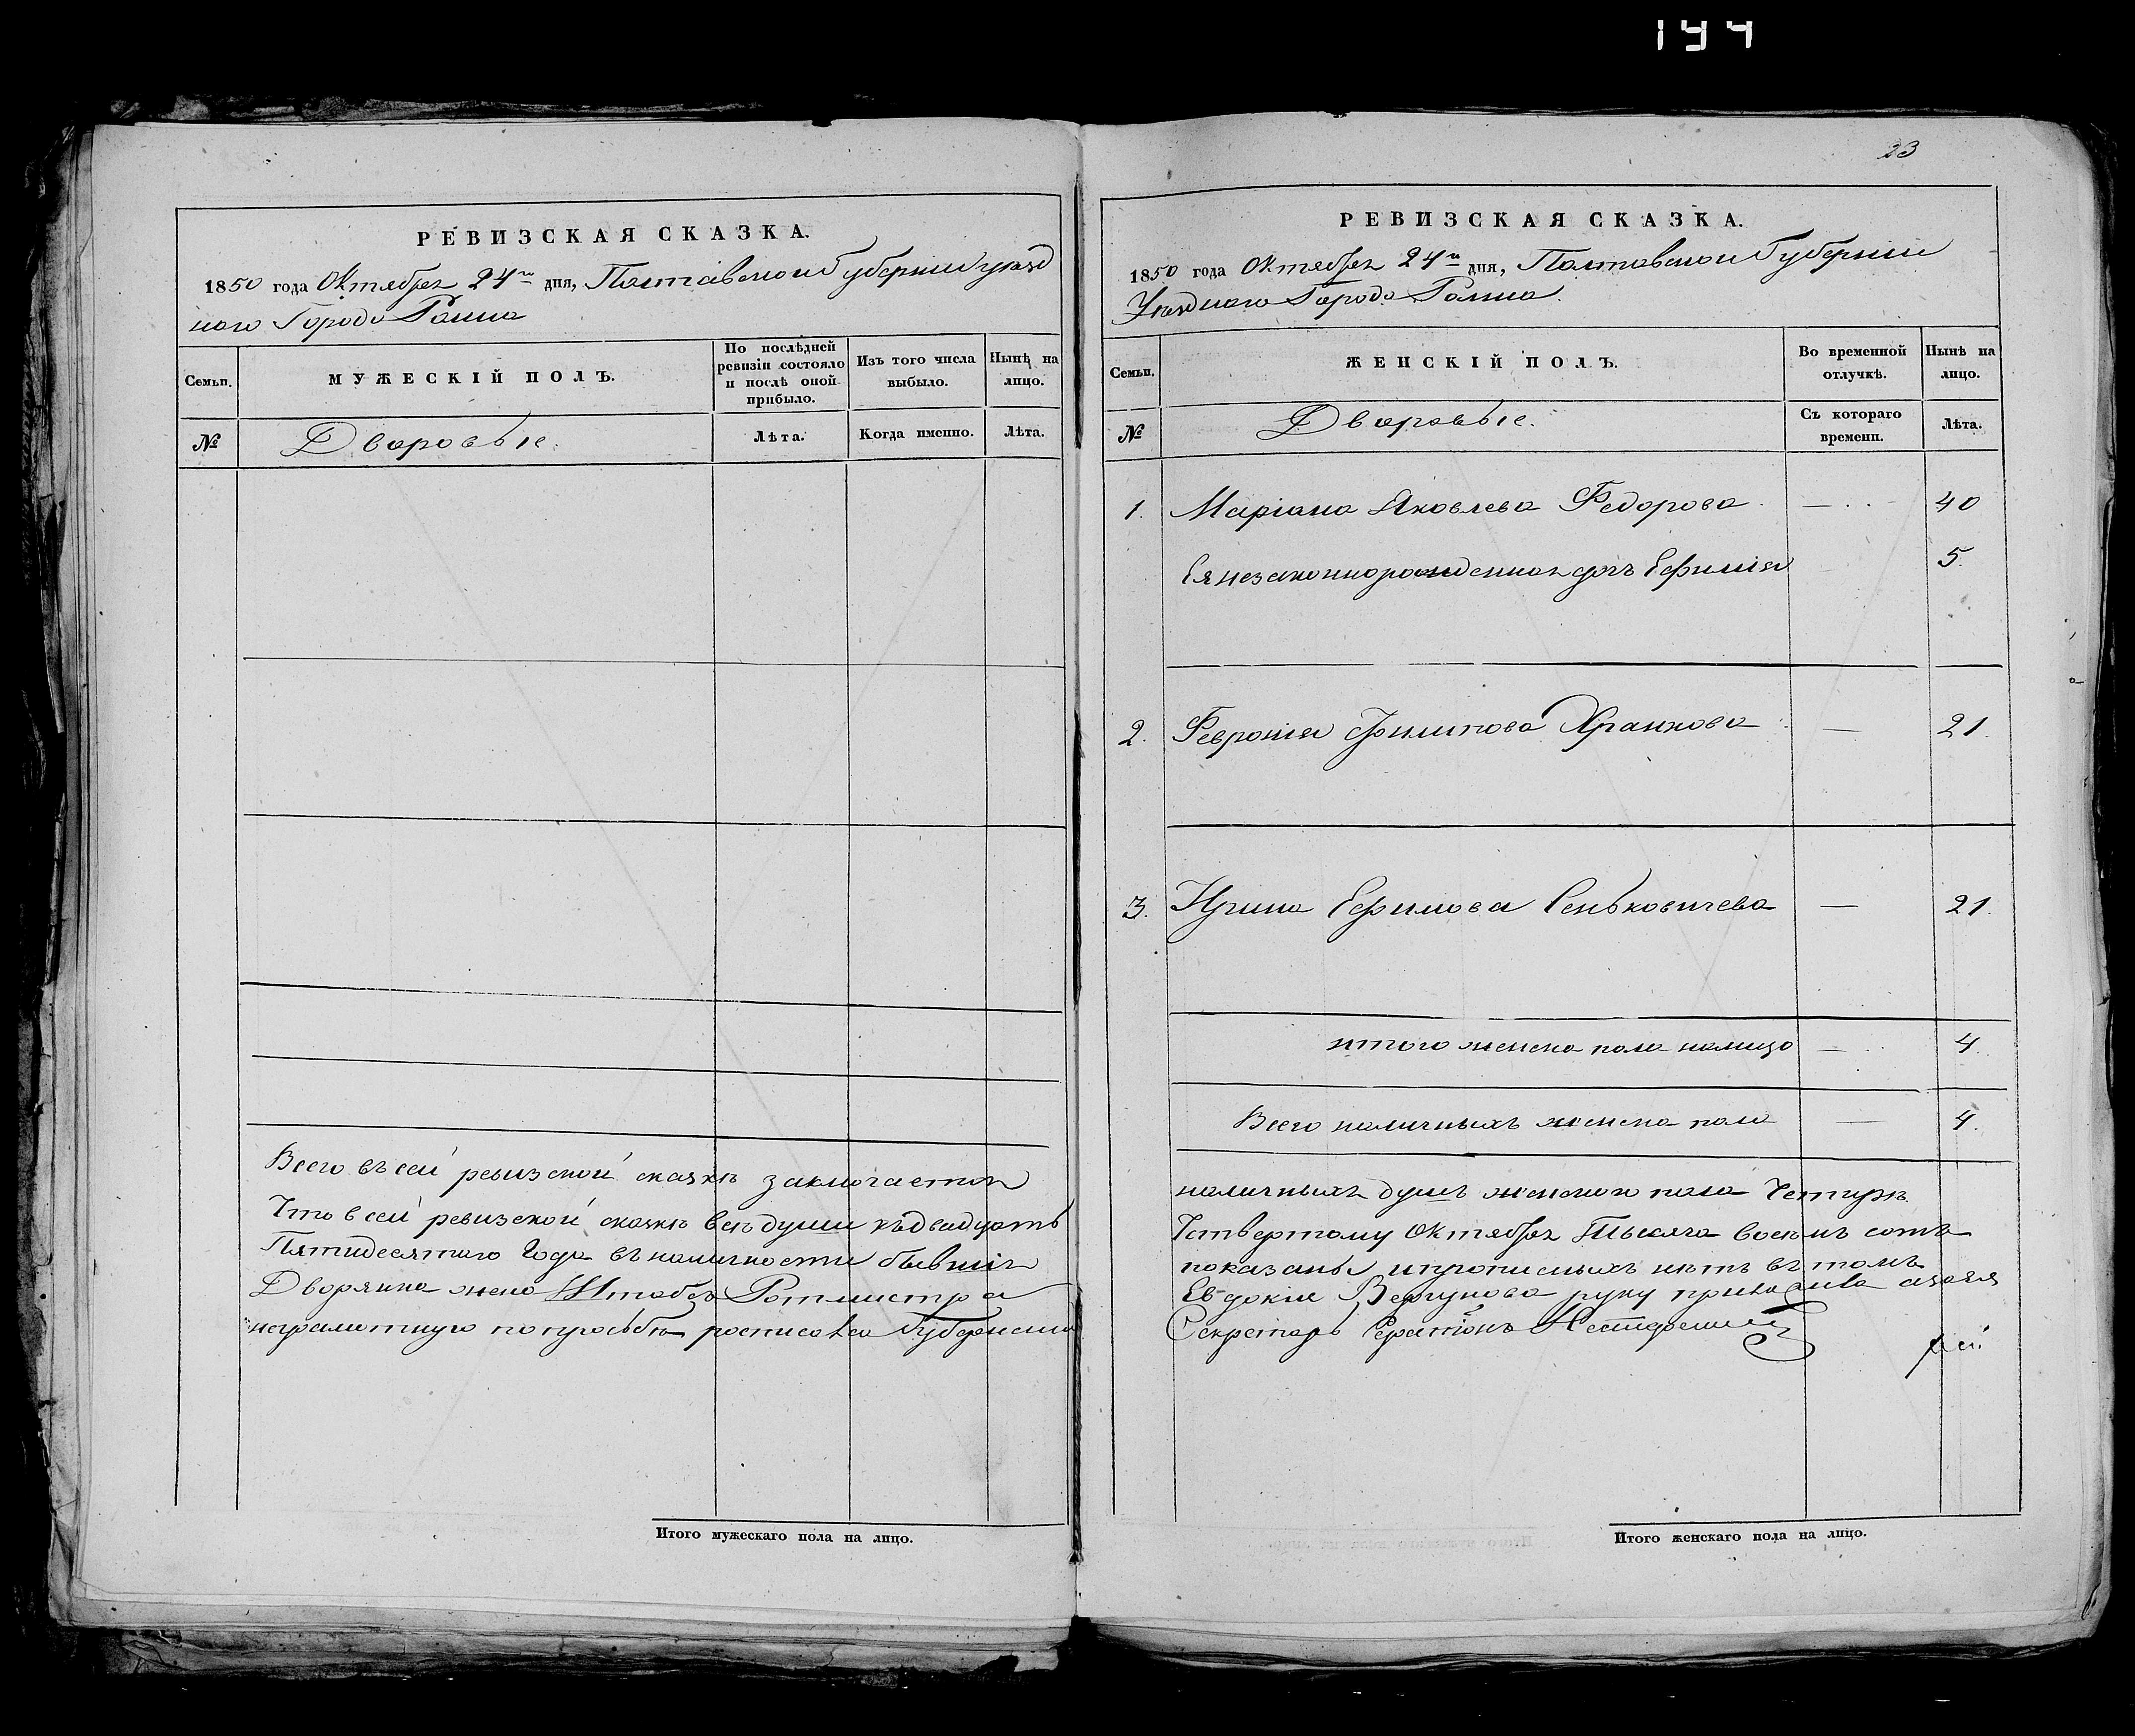 144
23
РЕВИЗСКАЯ СКАЗКА.
1850 года Октября 24го дня, Полтавской Губернии уезд
наго Города Ромна
Семьи.
МУЖЕСКІЙ ПОЛЪ.
По послѣдней ревизіи состояло и послѣ оной прибыло.
Изъ того числа выбыло.
Нынѣ на лицо.
№
Дворовые.
Лѣта.
Когда именно.
Лѣта.
Всего въ сей ревизской сказкѣ заключается
Что в сей ревизской сказкѣ всѣ души къ двадцать
Пятидесятаго Года въ наличности бывшія
Дворянка жена Штабсъ Ротмистра
неграмотную по просьбѣ росписовса Губернский
Итого мужескаго пола на лицо.
РЕВИЗСКАЯ СКАЗКА.
1850 года Октября 24го дня, Полтавской Губернии
Уезднаго Города Ромна.
Семьи.
ЖЕНСКІЙ ПОЛЪ.
Во временной отлучкѣ.
Нынѣ на лицо.
№
Дворовые.
Съ котораго времени.
Лѣта.
1. Маріана Яковлева Федорова — 40
Ея незаконнорожденная дочь Ефимія 5.
2. Феврония Филипова — 21.
3. Ирина Ефимова Сеньковичева — 21.
итого женска пола налицо — 4.
Всего наличныхъ женска пола — 4.
наличныхъ душъ женского пола Четыри
Четвертому Октября Тысяча восемъ сотъ
показаны и прописныхъ нѣтъ въ томъ
Евдокия руку приложила а за нея
Секретарь
Итого женскаго пола на лицо.